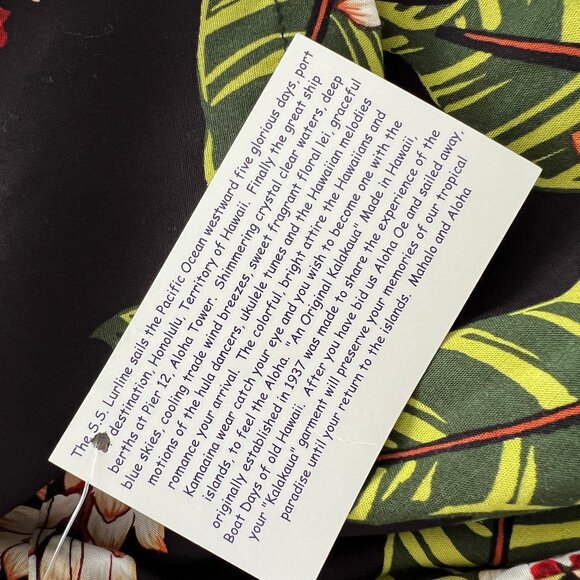 The S.S. Lurline sails the Pacific Ocean westward five glorious days, port
destination, Honolulu, Territory of Hawaii. Finally the great ship
berths at Pier 12, Aloha Tower. Shimmering crystal clear waters, deep
blue skies, cooling trade wind breezes, sweet fragrant floral lei, graceful
motions of the hula dancers, ukulele tunes and the Hawaiian melodies
romance your arrival. The colorful, bright attire the Hawaiians and
Kamaaina wear catch your eye and you wish to become one with the
islands, to feel the Aloha. "An Original Kalakaua" Made in Hawaii,
originally established in 1937 was made to share the experience of the
Boat Days of old Hawaii. After you have bid us Aloha Oe and sailed away,
your "Kalakaua" garment will preserve your memories of our tropical
paradise until your return to the islands. Mahalo and Aloha